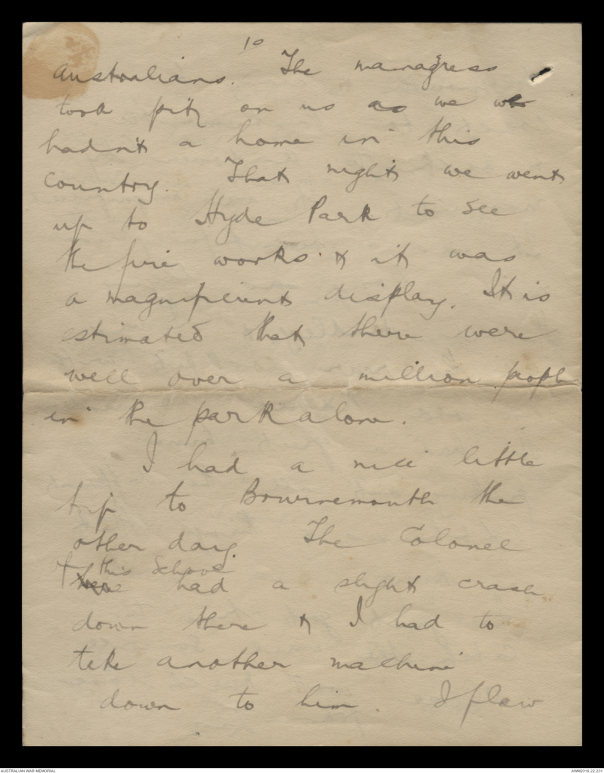 10
Australians. The manageress
took pity on us as we
hadn't a home in this
country. That night we went
up to Hyde Park to see
the fire works & it was
a magnificent display. It is
estimated that there were
well over a million people
in the park alone.
I had a nice little
trip to Bournemouth the
other day. The Colonel
this School
had a slight crash
down there & I had to
take another machine
down to him. I flew
AUSTRALIAN WAR MEMORIAL